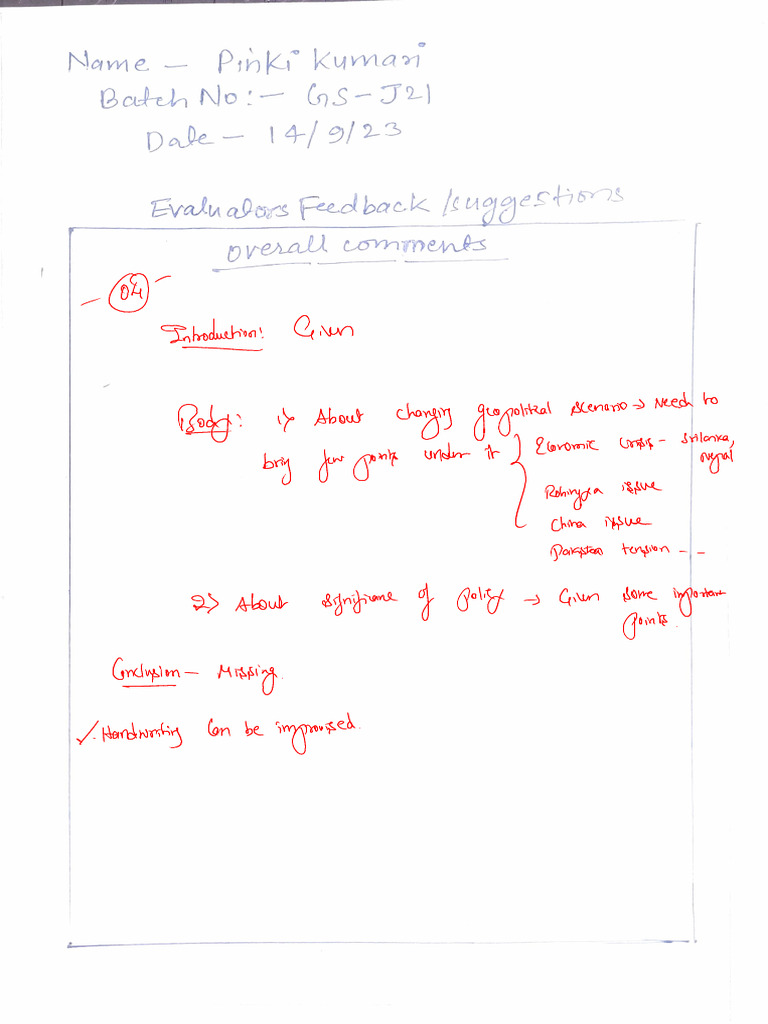 Name - Pinki Kumari
Batch No:- GS-J21
Date - 14/9/23
Evaluators Feedback /suggestions
overall comments
- 04 -
Introduction: Given
Body: 1) About changing geopolitical scenario → Need to
bring few points under it } Economic crisis - Srilanka,
nepal
Rohingya issue
China issue
Pakistan tension - -
2) About significance of policy → Given some important
points.
Conclusion - Missing.
✓. Handwriting can be improvised.